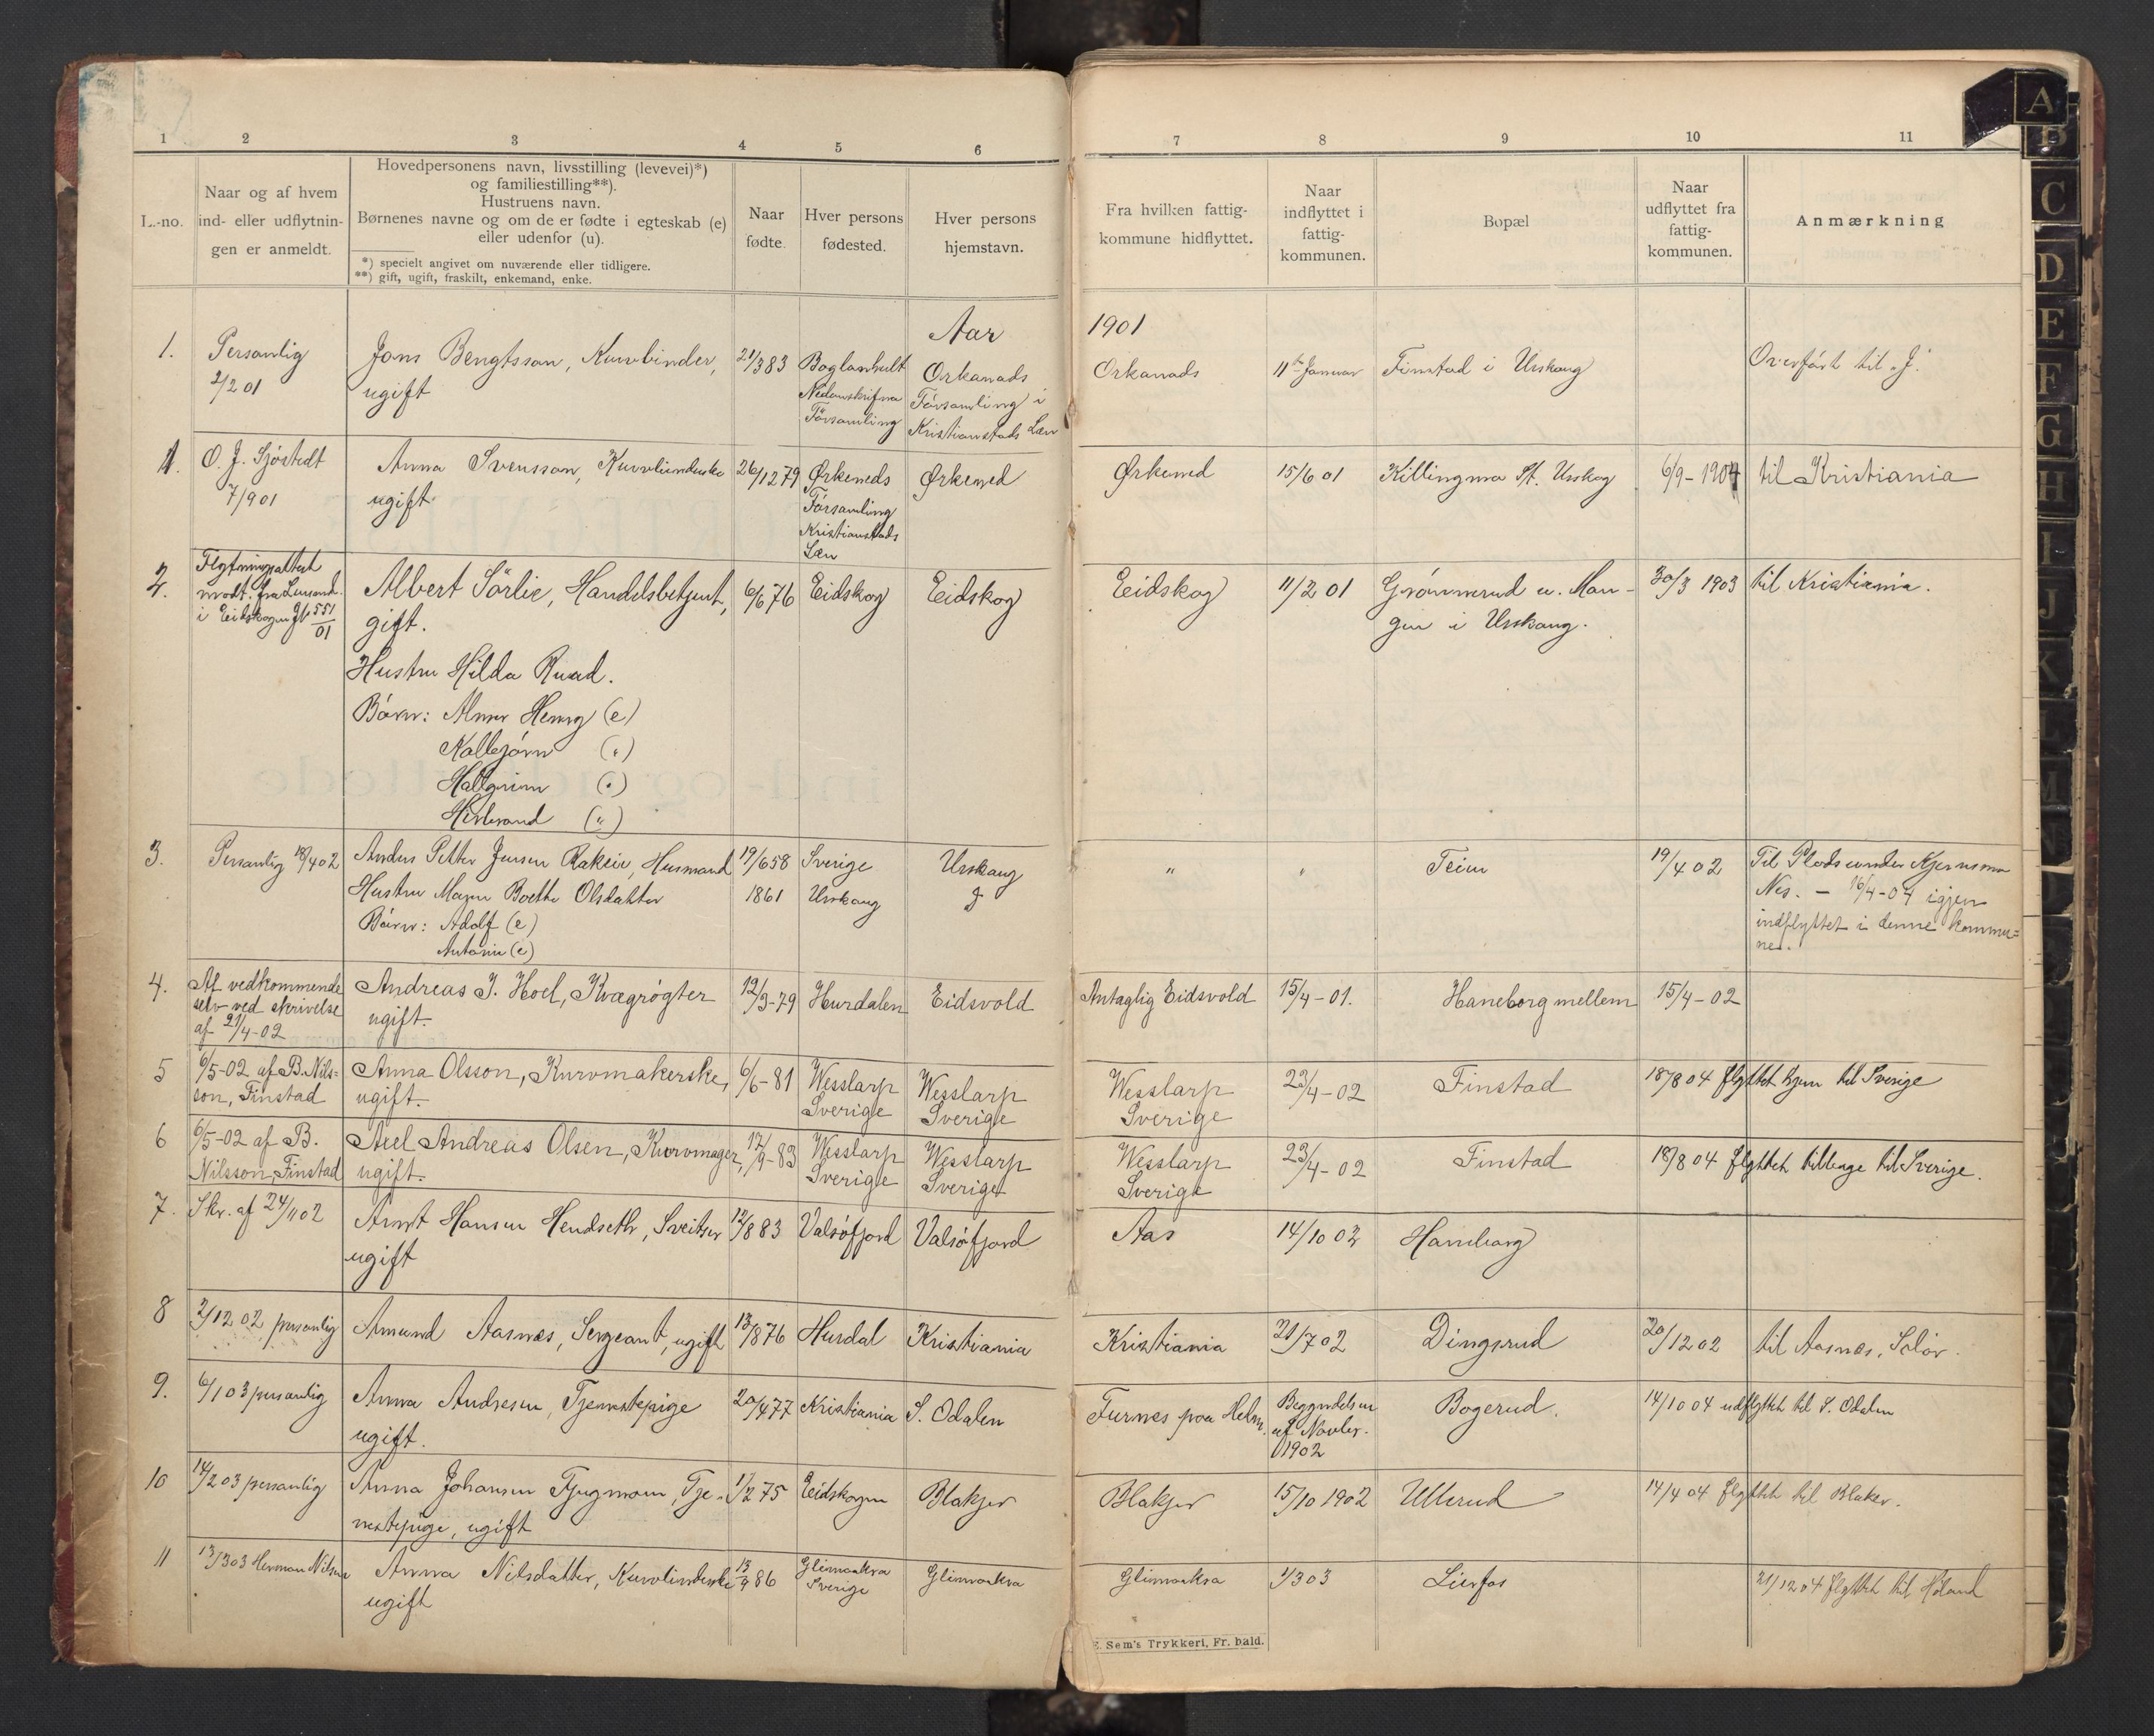 1 2 3 4 5 6 7 8 9 10 11
L.-no.
Naar og af hvem
ind- eller udflytnin-
gen er anmeldt.
Hovedpersonens navn, livsstilling (levevei)*)
og familiestilling**).
Hustruens navn.
Børnenes navne og om de er fødte i egteskab (e)
eller udenfor (u).
*) specielt angivet om nuværende eller tidligere.
**) gift, ugift, fraskilt, enkemand, enke.
Naar
fødte.
Hver persons
fødested.
Hver persons
hjemstavn.
Fra hvilken fattig-
kommune hidflyttet.
Naar
indflyttet i
fattig-
kommunen.
Bopæl
Naar
udflyttet fra
fattig-
kommunen.
Anmærkning
Aar 1901
1. Personlig
2/2 01
Jons Bengtsson, Kurvbinder,
ugift
21/3 83
Församling
Orkanads
Församling i
Kristianstads Læn
Orkanads
11te Januar
Finstad i Urskoug
Overført til "J."
1. O. J. Sjöstedt
7/9 01
Anna Svensson, Kurvbinderske
ugift.
26/12 79
Ørkeneds
Församling
Kristianstads
Læn
Ørkened
Ørkened
15/6 01
Killingmo St. Urskog
6/9-1904
til Kristiania
2. Flytningsattest
modt. fra Lensmd.
i Eidskogen Jl 551/01
Albert Sörlie, Handelsbetjent,
gift.
Hustru Hilda Ruud.
Börn: Almer Henry (e)
Kallbjörn (")
Hallgrim (")
Hildbrand (")
6/6 76
Eidskog
Eidskog
Eidskog
11/2 01
Grönnerud u. Man-
gen i Urskoug.
30/3 1903
til Kristiania.
3. Personlig 18/4 02
Anders Petter Jensen Rakeie, Husmand
Hustru Maren Boethe Olsdatter
Börn: Adolf (e)
Antonie (e)
19/6 58
1861
Sverige
Urskoug
Urskoug
"
"
Teien
19/4 02
Til Plads under Kjernsmo
Nes. — 16/4-04 igjen
indflyttet i denne kommu=
ne.
4. Af vedkommende
selv ved skrivelse
af 21/4-02
Andreas J. Hoel, Kvægrøgter
ugift.
12/3-79
Hurdalen
Eidsvold
Antaglig Eidsvold
15/4-01.
Haneborg mellem
15/4-02
5 6/5-02 af B. Nils=
son, Finstad
Anna Olsson, Kurvmakerske,
ugift.
6/6-81
Wesslarp
Sverige
Wesslarp
Sverige
Wesslarp
Sverige
23/4-02
Finstad
18/8 04 flyttet hjem til Sverige
6 6/5-02 af B.
Nilsson, Finstad
Axel Andreas Olsen, Kurvmager,
ugift.
17/9-83
Wesslarp
Sverige
Wesslarp
Sverige
Wesslarp
Sverige
23/4-02
Finstad
18/8 04 flyttet tilbage til Sverige.
7. Skr. af 24/11 02
Arnt Hansen Hendseth, Sveitser
ugift
12/8 83
Valsöfjord
Valsöfjord
Aas
14/10 02
Haneborg
8 2/12 02 personlig
Amund Aasnes, Sergeant, ugift
13/8 76
Hurdal
Kristiania
Kristiania
21/7 02
Dingsrud
20/12 02
til Aasnes, Solör.
9. 6/1 03 personlig
Anna Andresen, Tjenestepige
ugift.
20/4 77
Kristiania
S. Odalen
Furnes paa Hedm.
Begyndelsen
af Novbr.
1902
Bogerud.
14/10 04 udflyttet til S. Odalen
10 14/2 03 personlig
Anna Johansen Tjugmoen, Tje-
nestepige, ugift
1/2 75
Eidskogen
Blakjer
Blakjer
15/10 1902
Ullerud
14/4 04 flyttet til Blaker.
11 13/3 03 Herman Nilsen
Anna Nilsdatter, Kurvbinderske
ugift
13/9 86
Glimaakra
Sverige
Glimaakra
Glimaakra
1/3 03
Lierfos
21/12 04 flyttet til Høland
E. Sem's Trykkeri, Fr. hald.
A
B
C
D
E
F
G
H
I
J
K
L
M
N